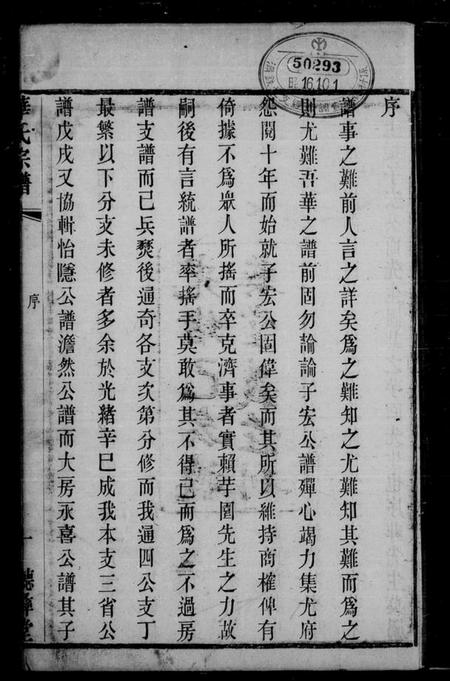 序
譜事之難前人言之詳矣爲之難知之尤難知其難而爲之
則尤難吾華之譜前固勿論論子宏公譜殫心竭力集尤府
怨閱十年而始就子宏公固偉矣而其所以維持商榷俾有
倚據不爲眾人所搖而卒克濟事者實賴芋園先生之力故
嗣後有言統譜者率搖手莫敢爲其不得已而爲之不過房
譜支譜而已兵燹後通奇各支次第分修而我通四公支丁
最繁以下分支未修者多余於光緒辛巳成我本支三省公
譜戊戌又協輯怡隱公譜澹然公譜而大房永喜公譜其子
華氏宗譜
序
一
50293
昭16.10.1